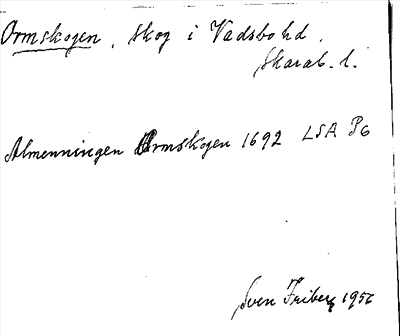 Ormskogen, skog i Vadsbo hd.
Skarab. l.
Almenningen Ormskogen 1692 LSA P6
Sven Friberg 1956